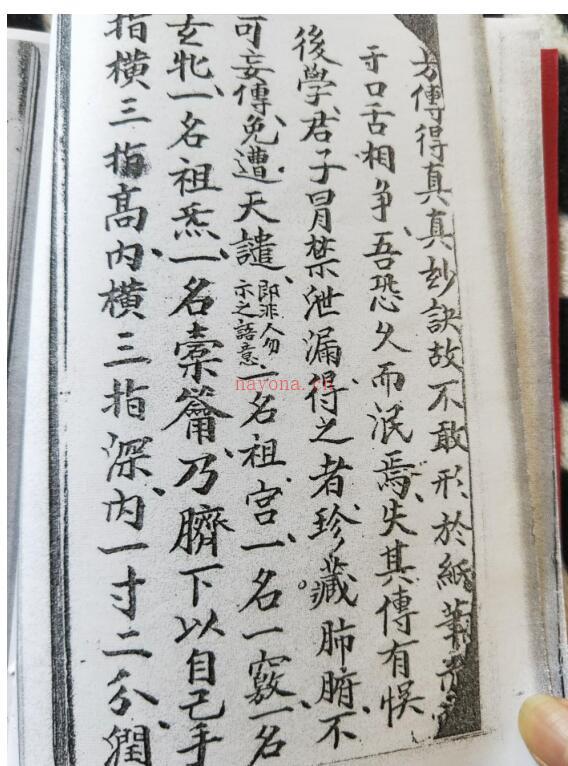 芳傳得真真妙訣故不敢形於紙筆
于口舌相争吾恐久而泯焉失其傳有悮
後學君子冒禁泄漏得之者珍藏肺腑不
可妄傳免遭天譴即非人勿示之語意一名祖宫一名一竅一名
玄牝一名祖炁一名橐籥乃臍下以自己手
指横三指高内横三指深内一寸二分濶
nayona.cn